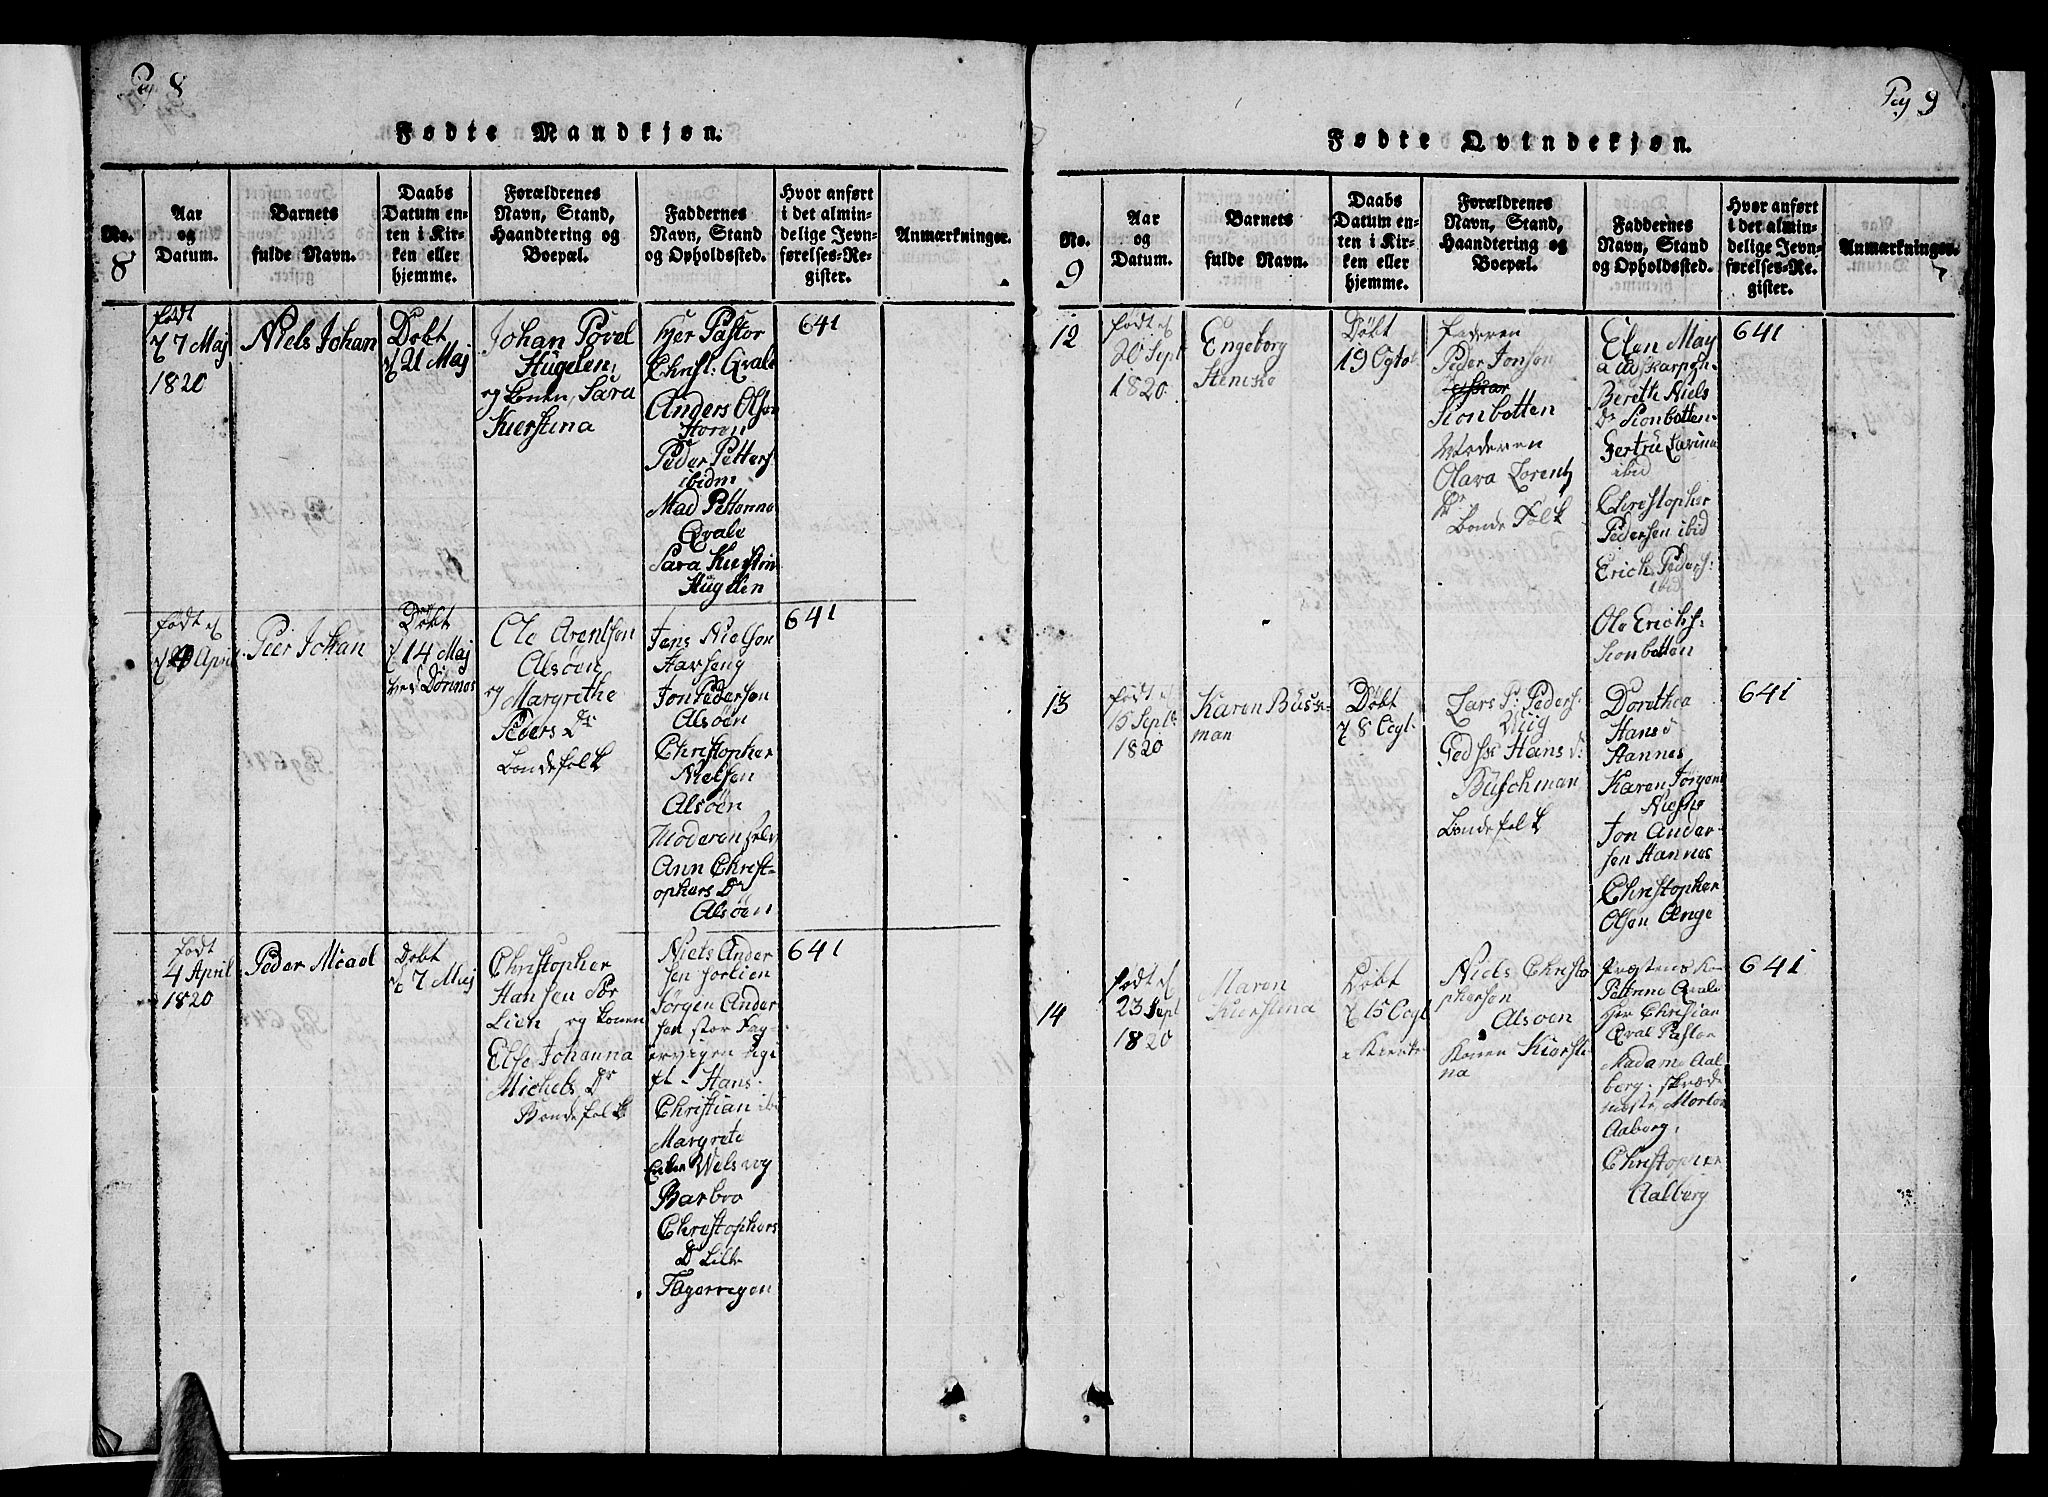 Pag 8
Fødte Mandkjøn.
No.
8
Aar
og
Datum.
Barnets
fulde Navn.
Daabs
Datum en-
ten i Kir-
ken eller
hjemme.
Forældrenes
Navn, Stand,
Haandtering og
Boepæl.
Faddernes
Navn, Stand
og Opholdssted.
Hvor anført
i det almin-
delige Jevn-
førelses-Re-
gister.
Anmærkninger.
født
7 Maj
1820
Niels Johan
Døbt
21 Maj
Johan Povel
Hugelen,
og konen, Sara
Kierstina
Hjer Pastor
Christ: Qvale
Anders Olsen
Horen
Peder Petters
ibidm
Mad Pettorino
Qvale
Sara Kierstin
Hugelen
641
født
April
Pier Johan
Døbt
14 Maj
Dönnes
Ole Arentson
Alsöen
og Margrethe
Peders Dr
Bondefolk
Jens Nielson
Jon Pederson
Alsöen
Christopher
Nielsen
Alsöen
Moderen selv
Ann Christ-
ophers Dr
Alsöen
641
født
4 April
1820
Peder Micael
Døbt
7 Maj
Christopher
Hansen Sör
Lien, og konen
Else Johanna
Michels Dr
Bondefolk
Niels Ander
sen sorlien
Jörgen Ander
sen stor Fag-
ervigen ugi
ft - Hans
Christian ibi
Margrete
Enken Welsvog
Barbro
Christophers
Dr Lille
Fagervigen
641
Pag 9
Fødte Qvindekjøn.
No.
9
Aar
og
Datum.
Barnets
fulde Navn.
Daabs
Datum en-
ten i Kir-
ken eller
hjemme.
Forældrenes
Navn, Stand,
Haandtering og
Boepæl.
Faddernes
Navn, Stand
og Opholdssted.
Hvor anført
i det almin-
delige Jevn-
førelses-Re-
gister.
Anmærkninger.
12
født
20 Sept
1820
Engeborg
Døbt
19 Ogtob
Faderen
Peder Jonson
Sionbotten
Moderen
Olava Lorentz
Dr
Bonde Folk
Elen Maj
Bereth Niels
Dr Sionbotten
Gertru
ibid
Christopher
Pedersen ibid
Erich Peders:
ibid
Ole Erichs:
Sionbotten
641
13
født
15 Sept
1820
Karen Bus
man
Døbt
8 Ogt:
Lars P: Peders:
Hans d:
Büschman
Bondefolk
Dorothea
Hans d
Hannes
Karen Jörgens
Jon Ander-
sen Hannes
Christopher
Olsen Ange
641
14
født
23 Sept
1820
Maren
Kierstina
Døbt
15 Ogt
i Kierke
Niels Christo
phersen
Alsoen
Konen Kiersti
na
Præstens Ko
Pettrine Qvale
Hjer Christian
Qval Pastor
Madam Aal
berg, skræde
Morten
Aaberg,
Christopher
Aalberg
641